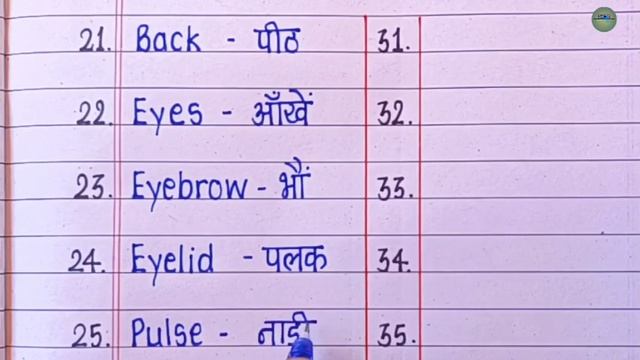 21. Back - पीठ 31.
22. Eyes - आँखें 32.
23. Eyebrow - भौं 33.
24. Eyelid - पलक 34.
25. Pulse - नाडी 35.